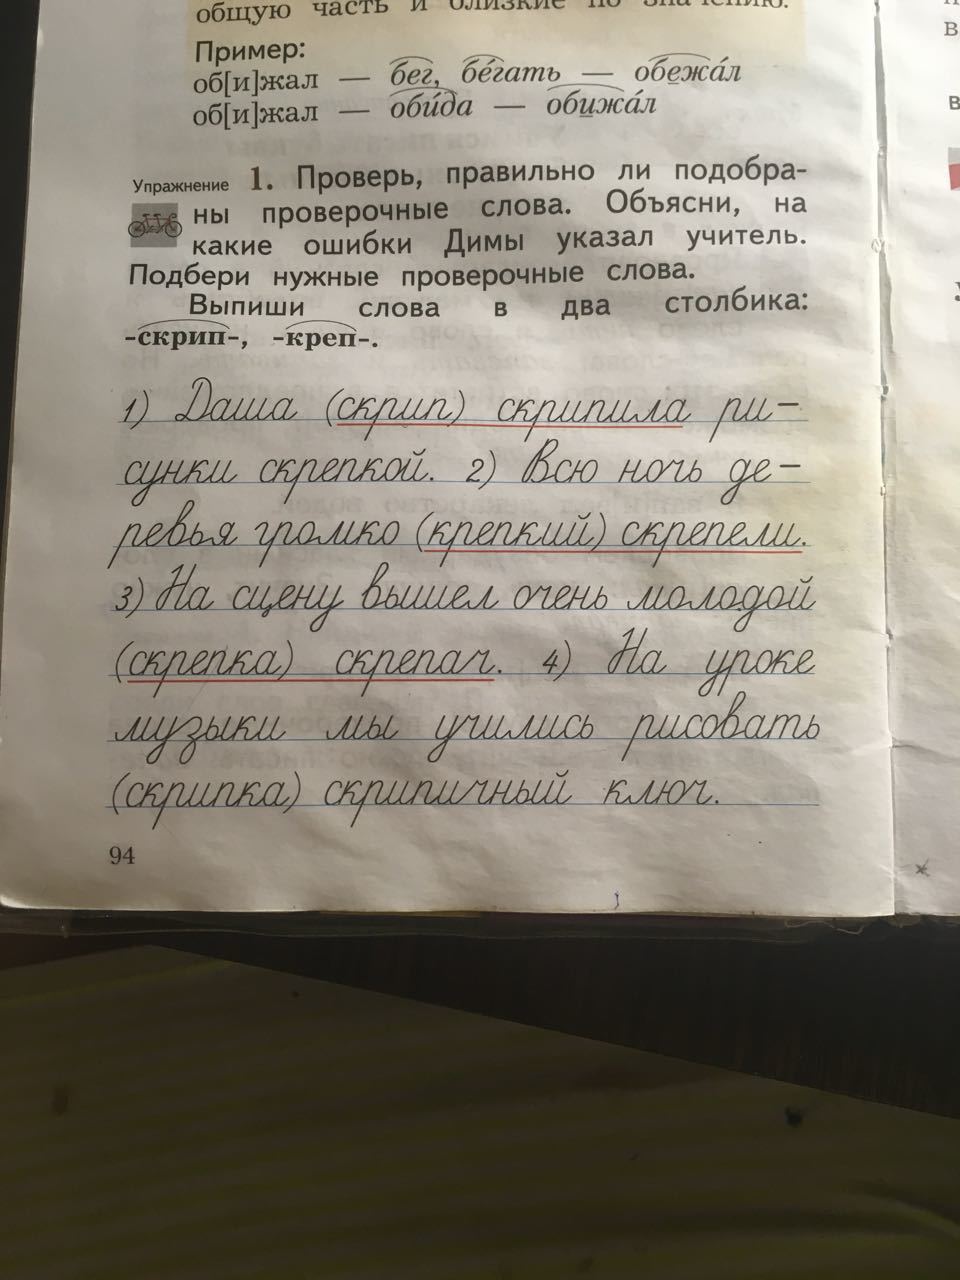 общую часть и близкие по значению.
Пример:
об[и]жал — бег, бе́гать — обежа́л
об[и]жал — оби́да — обижа́л
Упражнение 1. Проверь, правильно ли подобра-
ны проверочные слова. Объясни, на
какие ошибки Димы указал учитель.
Подбери нужные проверочные слова.
Выпиши слова в два столбика:
-скрип-, -креп-.
1) Даша (скрип) скрипила ри-
сунки скрепкой. 2) Всю ночь де-
ревья громко (крепкий) скрепели.
3) На сцену вышел очень молодой
(скрепка) скрепач. 4) На уроке
музыки мы учились рисовать
(скрипка) скрипичный ключ.
94